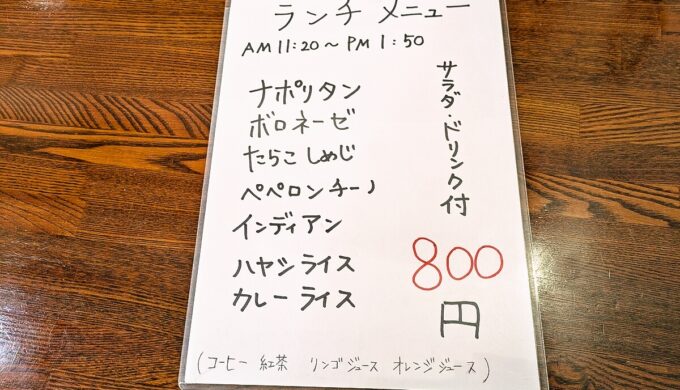 ランチ メニュー
AM 11:20～PM 1:50
ナポリタン
ボロネーゼ
たらこ しめじ
ペペロンチーノ
インディアン
ハヤシライス
カレーライス
サラダ・ドリンク付
800
円
(コーヒー 紅茶 リンゴジュース オレンジジュース)